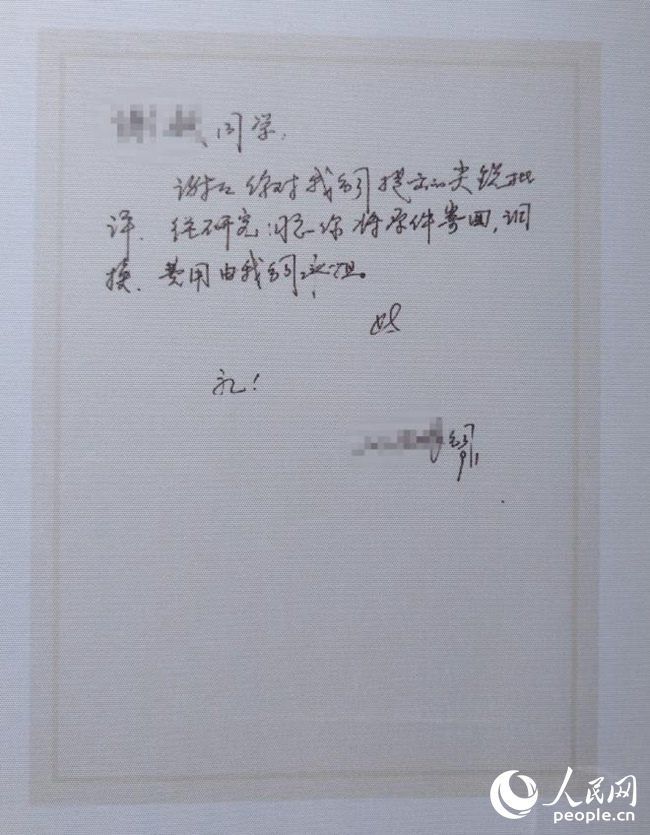 同学：
谢谢你对我们提出的尖锐批
评。经研究，同意你将原件寄回，调
换。费用由我们负担。
此
礼！
人民网
people.cn